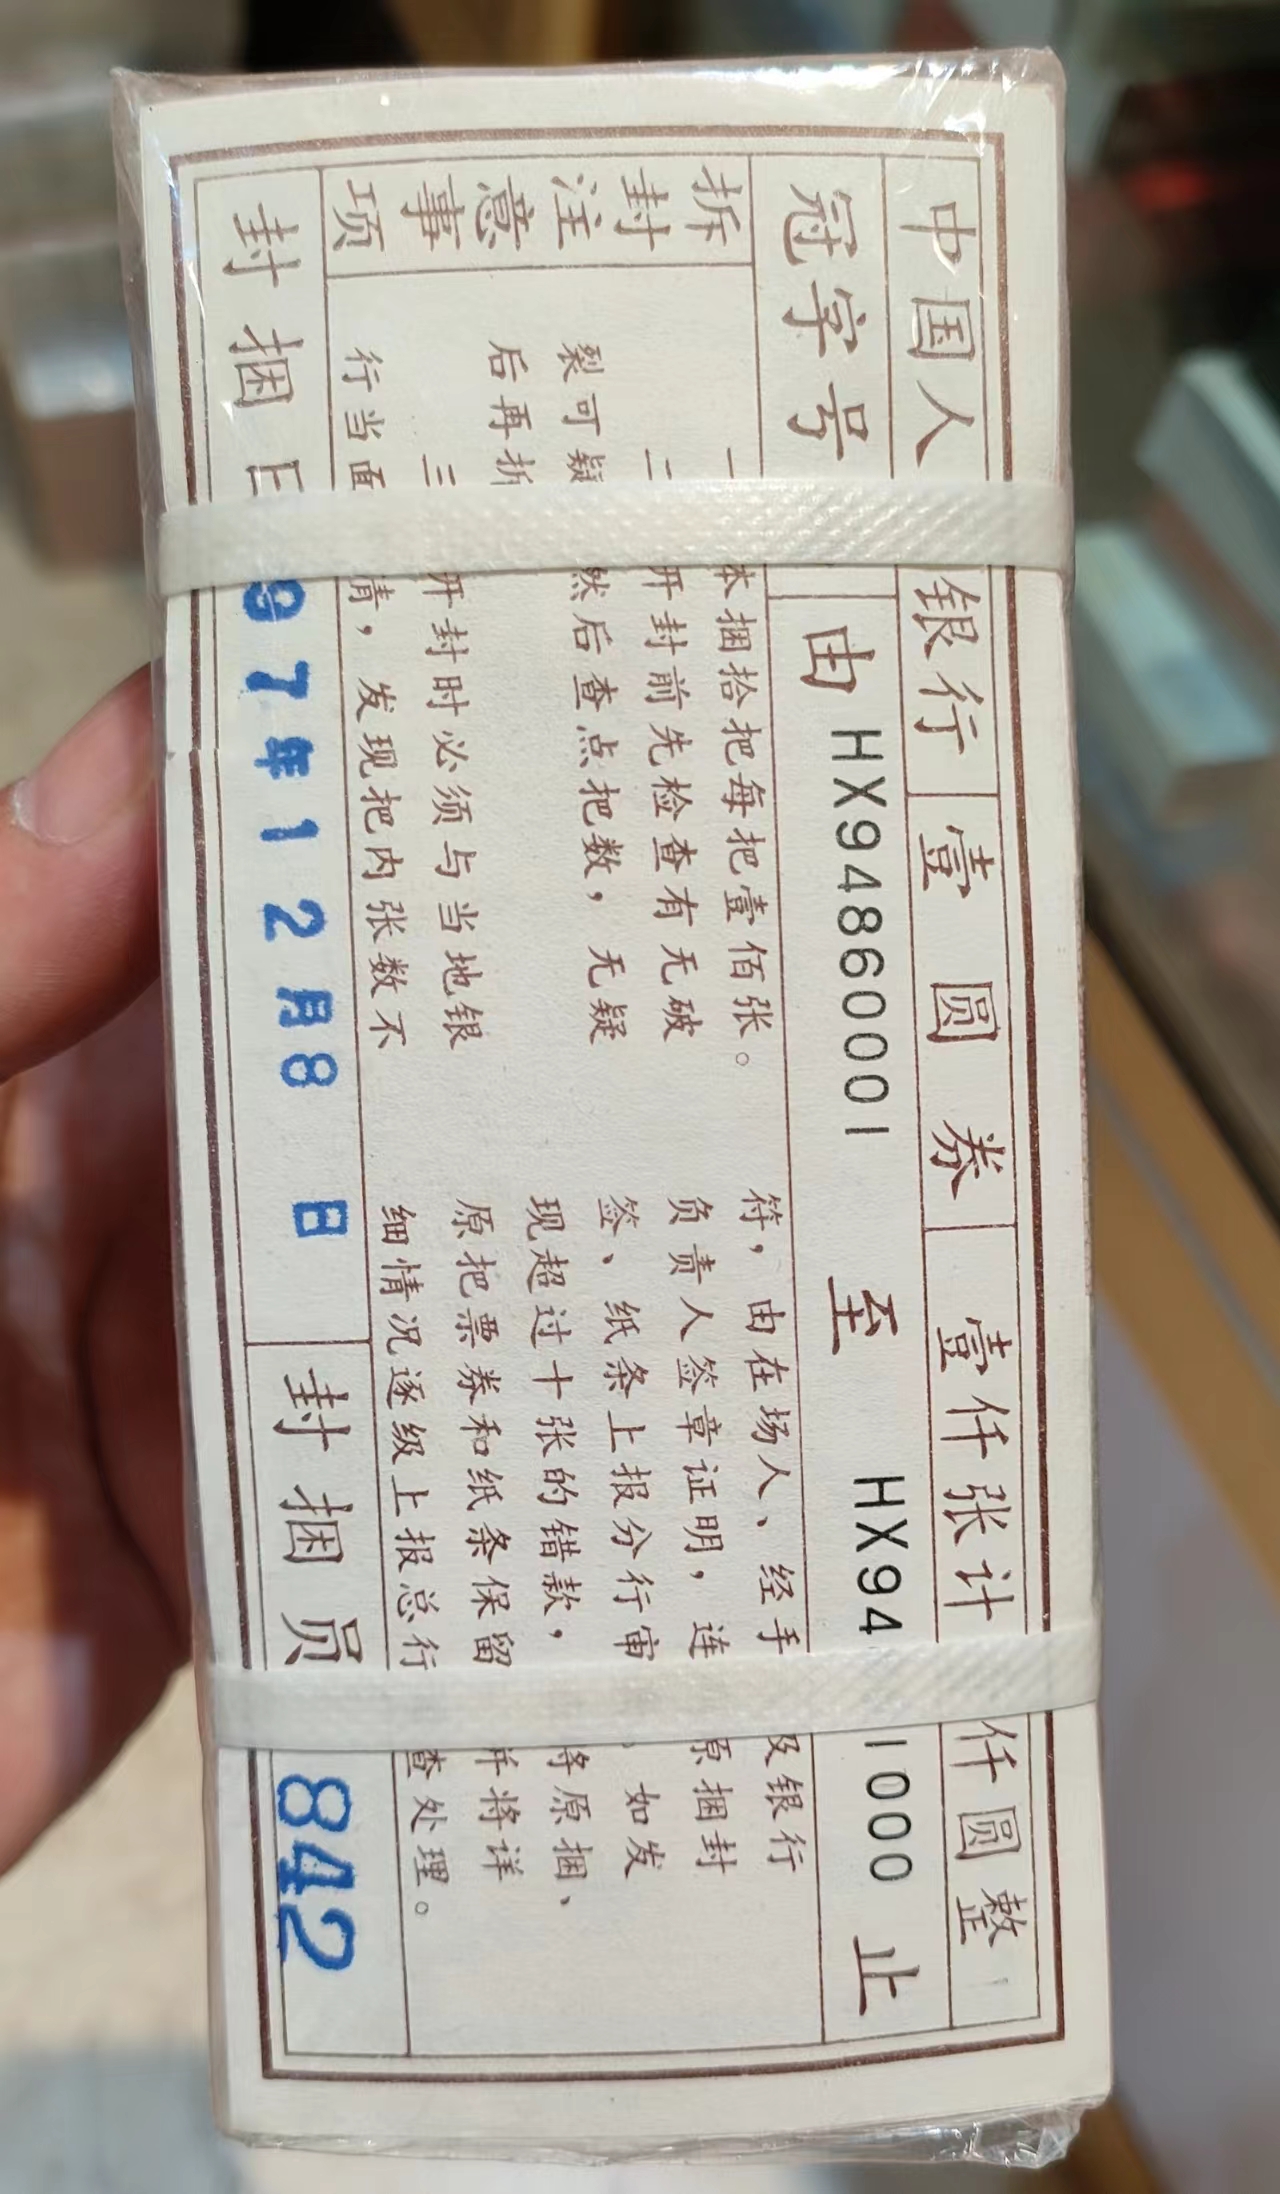 中国人 银行 壹圆券 壹仟张计 仟圆整
冠字号 由 HX94860001 至 HX94 1000 止
拆封注意事项
一 本捆拾把每把壹佰张。
二 开封前先检查有无破
裂可疑 然后查点把数，无疑
后再拆
三 开封时必须与当地银
行当面 清，发现把内张数不
符，由在场人、经手 及银行
负责人签章证明，连 原捆封
签、纸条上报分行审 如发
现超过十张的错款， 将原捆、
原把票券和纸条保留 并将详
细情况逐级上报总行 查处理。
封捆日 97年12月8日 封捆员 842